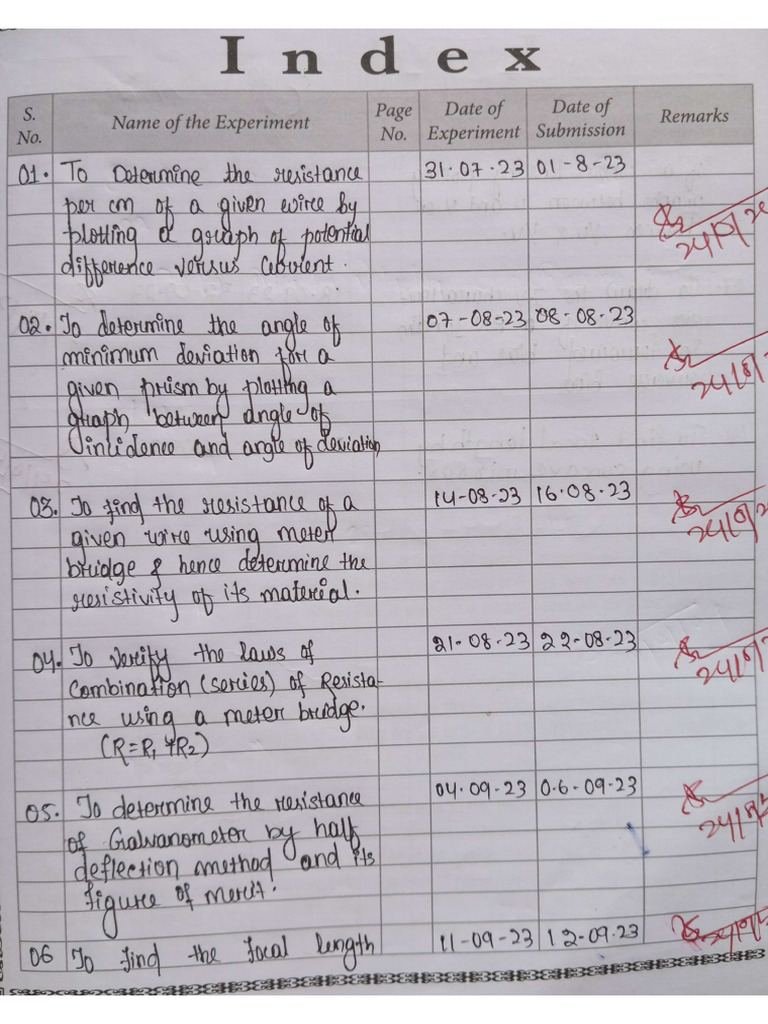 Index
S. No. Name of the Experiment Page No. Date of Experiment Date of Submission Remarks
01. To Determine the resistance 31.07.23 01-8-23
per cm of a given wire by
plotting a graph of potential
difference versus current.
02. To determine the angle of 07-08-23 08-08-23
minimum deviation for a
given prism by plotting a
graph between angle of
incidence and angle of deviation
03. To find the resistance of a 14-08-23 16.08.23
given wire using meter
bridge & hence determine the
resistivity of its material.
04. To verify the laws of 21-08-23 22-08-23
Combination (series) of Resista-
nce using a meter bridge.
(R=R1+R2)
05. To determine the resistance 04.09.23 0.6-09-23
of Galvanometer by half
deflection method and its
figure of merit.
06 To find the focal length 11-09-23 12-09.23